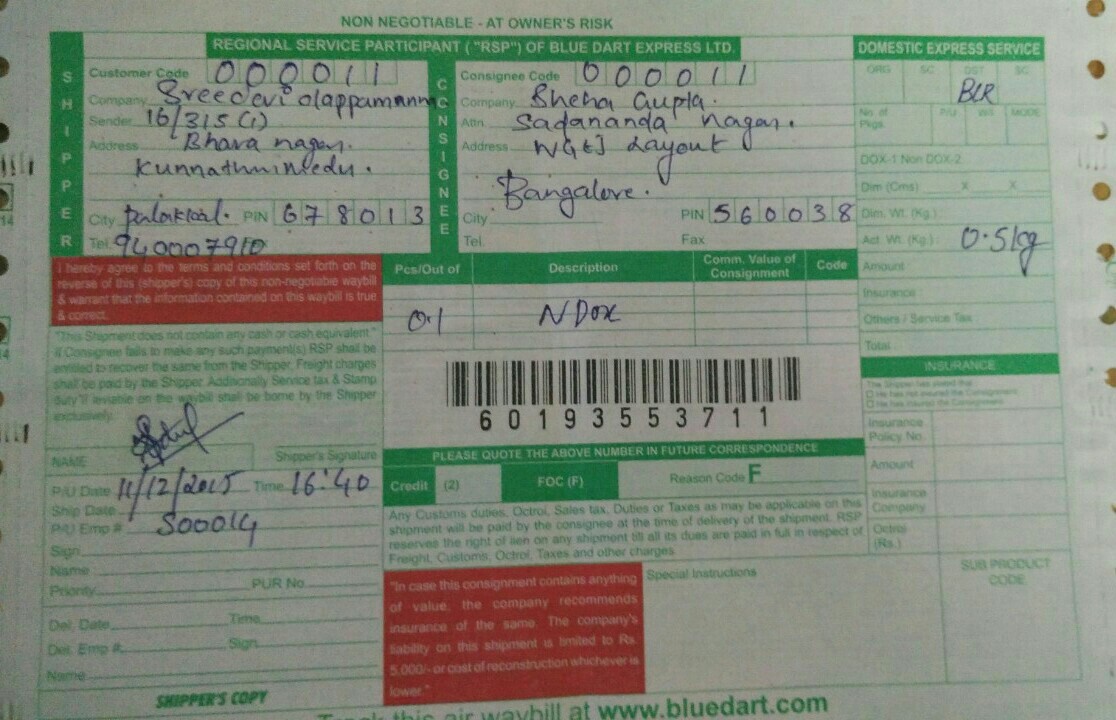 NON NEGOTIABLE - AT OWNER'S RISK
REGIONAL SERVICE PARTICIPANT ("RSP") OF BLUE DART EXPRESS LTD.
DOMESTIC EXPRESS SERVICE
SHIPPER
Customer Code 000011
Company Sreedevi olappamanna
Sender 16/315(1)
Address Bhara nagar.
City PIN 678013
Tel. 9400079110
CONSIGNEE
Consignee Code 000011
Company Gupta.
Attn. Sadananda nagar.
Address NGEJ Layout
Bangalore.
City PIN 560038
Tel. Fax
ORG SC DST SC
BLR
No. of Pkgs. P/U MODE
DOX-1 Non DOX-2
Dim (Cms) X X
Dim. Wt. (Kg.)
Act. Wt. (Kg.) 0.5kg
Amount
Insurance
Others / Service Tax
Total
I hereby agree to the terms and conditions set forth on the
reverse of this (shipper's) copy of this non-negotiable waybill
& warrant that the information contained on this waybill is true
& correct.
Pcs/Out of Description Comm. Value of Consignment Code
01 NDox
"This Shipment does not contain any cash or cash equivalent."
If Consignee fails to make any such payment(s) RSP shall be
entitled to recover the same from the Shipper. Freight charges
shall be paid by the Shipper. Additionally Service tax & Stamp
duty if leviable on the waybill shall be borne by the Shipper
exclusively.
NAME Shipper's Signature
60193553711
PLEASE QUOTE THE ABOVE NUMBER IN FUTURE CORRESPONDENCE
Credit (2) FOC (F) Reason Code F
Any Customs duties, Octroi, Sales tax, Duties or Taxes as may be applicable on this
shipment will be paid by the consignee at the time of delivery of the shipment. RSP
reserves the right of lien on any shipment till all its dues are paid in full in respect of
Freight, Customs, Octroi, Taxes and other charges
INSURANCE
The Shipper has stated that
He has not insured the Consignment
He has insured the Consignment
Insurance Policy No.
Amount
Insurance Company
Octroi (Rs.)
SUB PRODUCT CODE
P/U Date 11/12/2015 Time 16:40
Ship Date
P/U Emp # S00014
Sign
Name
Priority PUR No.
Del. Date Time
Del. Emp # Sign
Name
"In case this consignment contains anything
of value, the company recommends
insurance of the same. The company's
liability on this shipment is limited to Rs.
5,000/- or cost of reconstruction whichever is
lower."
Special Instructions
SHIPPER'S COPY
Track this air waybill at www.bluedart.com